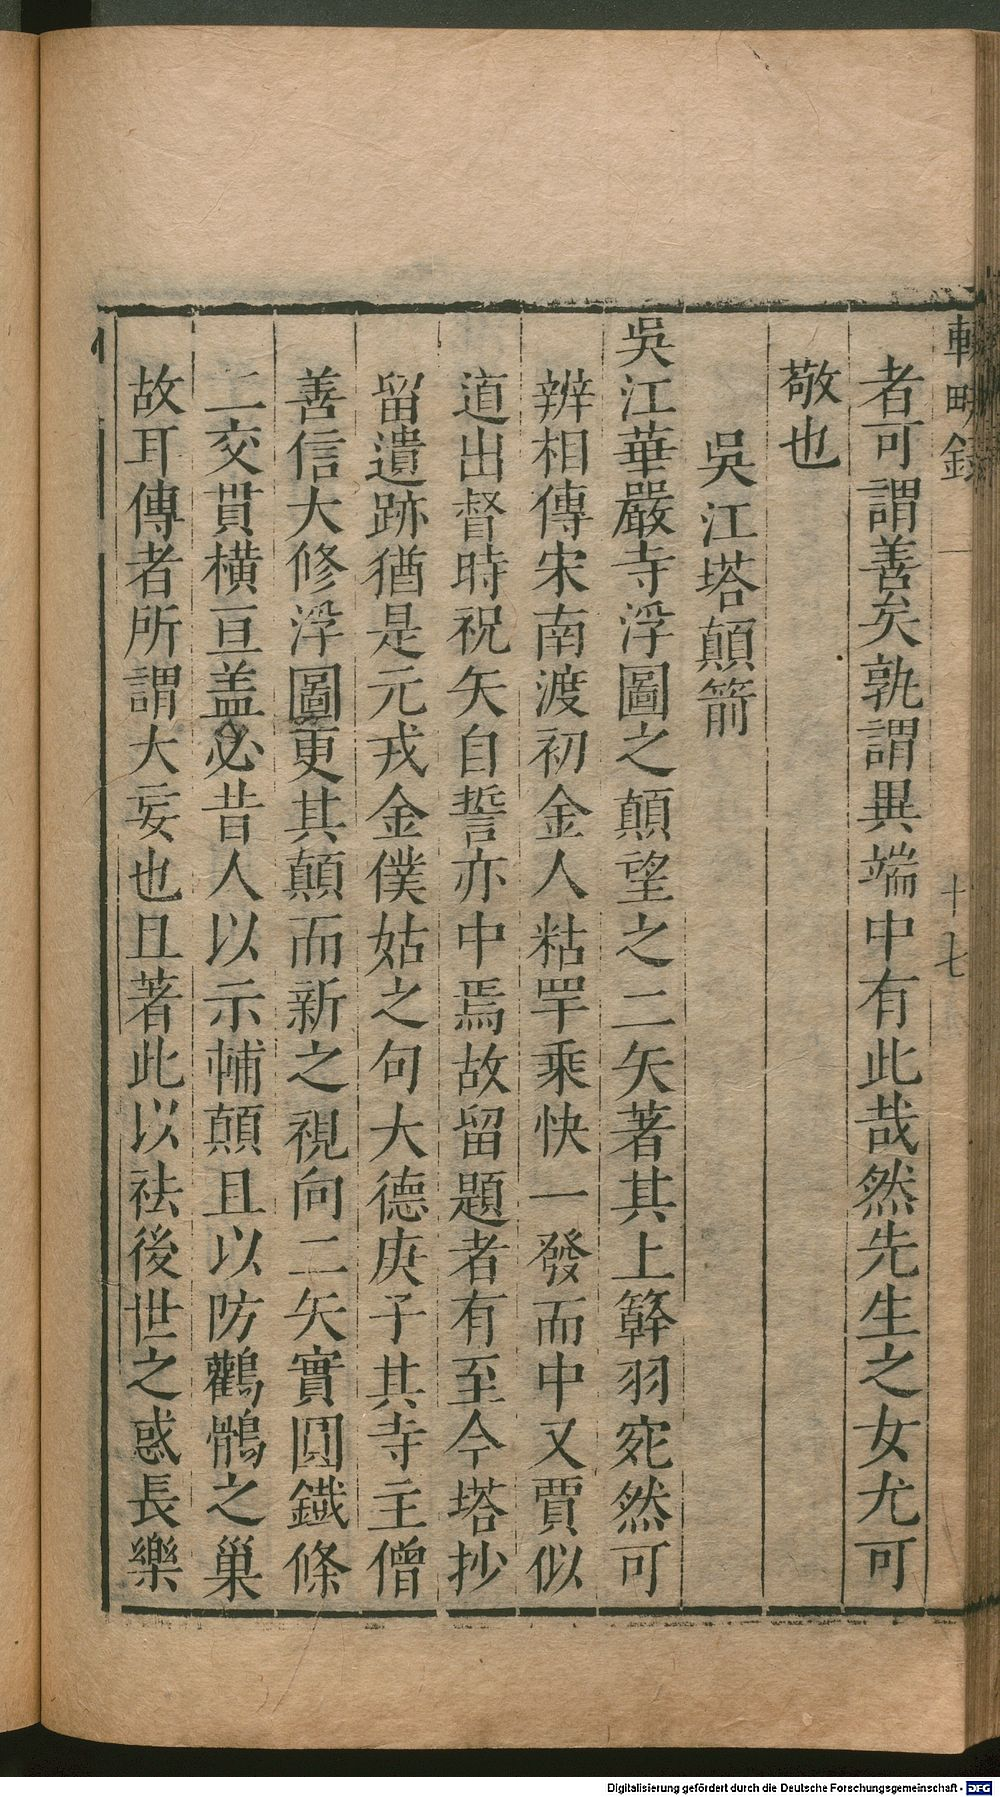 十七
者可謂善矣孰謂異端中有此哉然先生之女尤可
敬也
吳江塔顛箭
吳江華嚴寺浮圖之顛望之二矢著其上簳羽宛然可
辨相傳宋南渡初金人粘罕乘快一發而中又賈似
道出督時祝矢自誓亦中焉故留題者有至今塔抄
留遺跡猶是元戎金僕姑之句大德庚子其寺主僧
善信大修浮圖更其顛而新之視向二矢實圓鐵條
二交貫橫亘盖必昔人以示輔顛且以防鸛鶻之巢
故耳傳者所謂大妄也且著此以祛後世之惑長樂
Digitalisierung gefördert durch die Deutsche Forschungsgemeinschaft - DFG